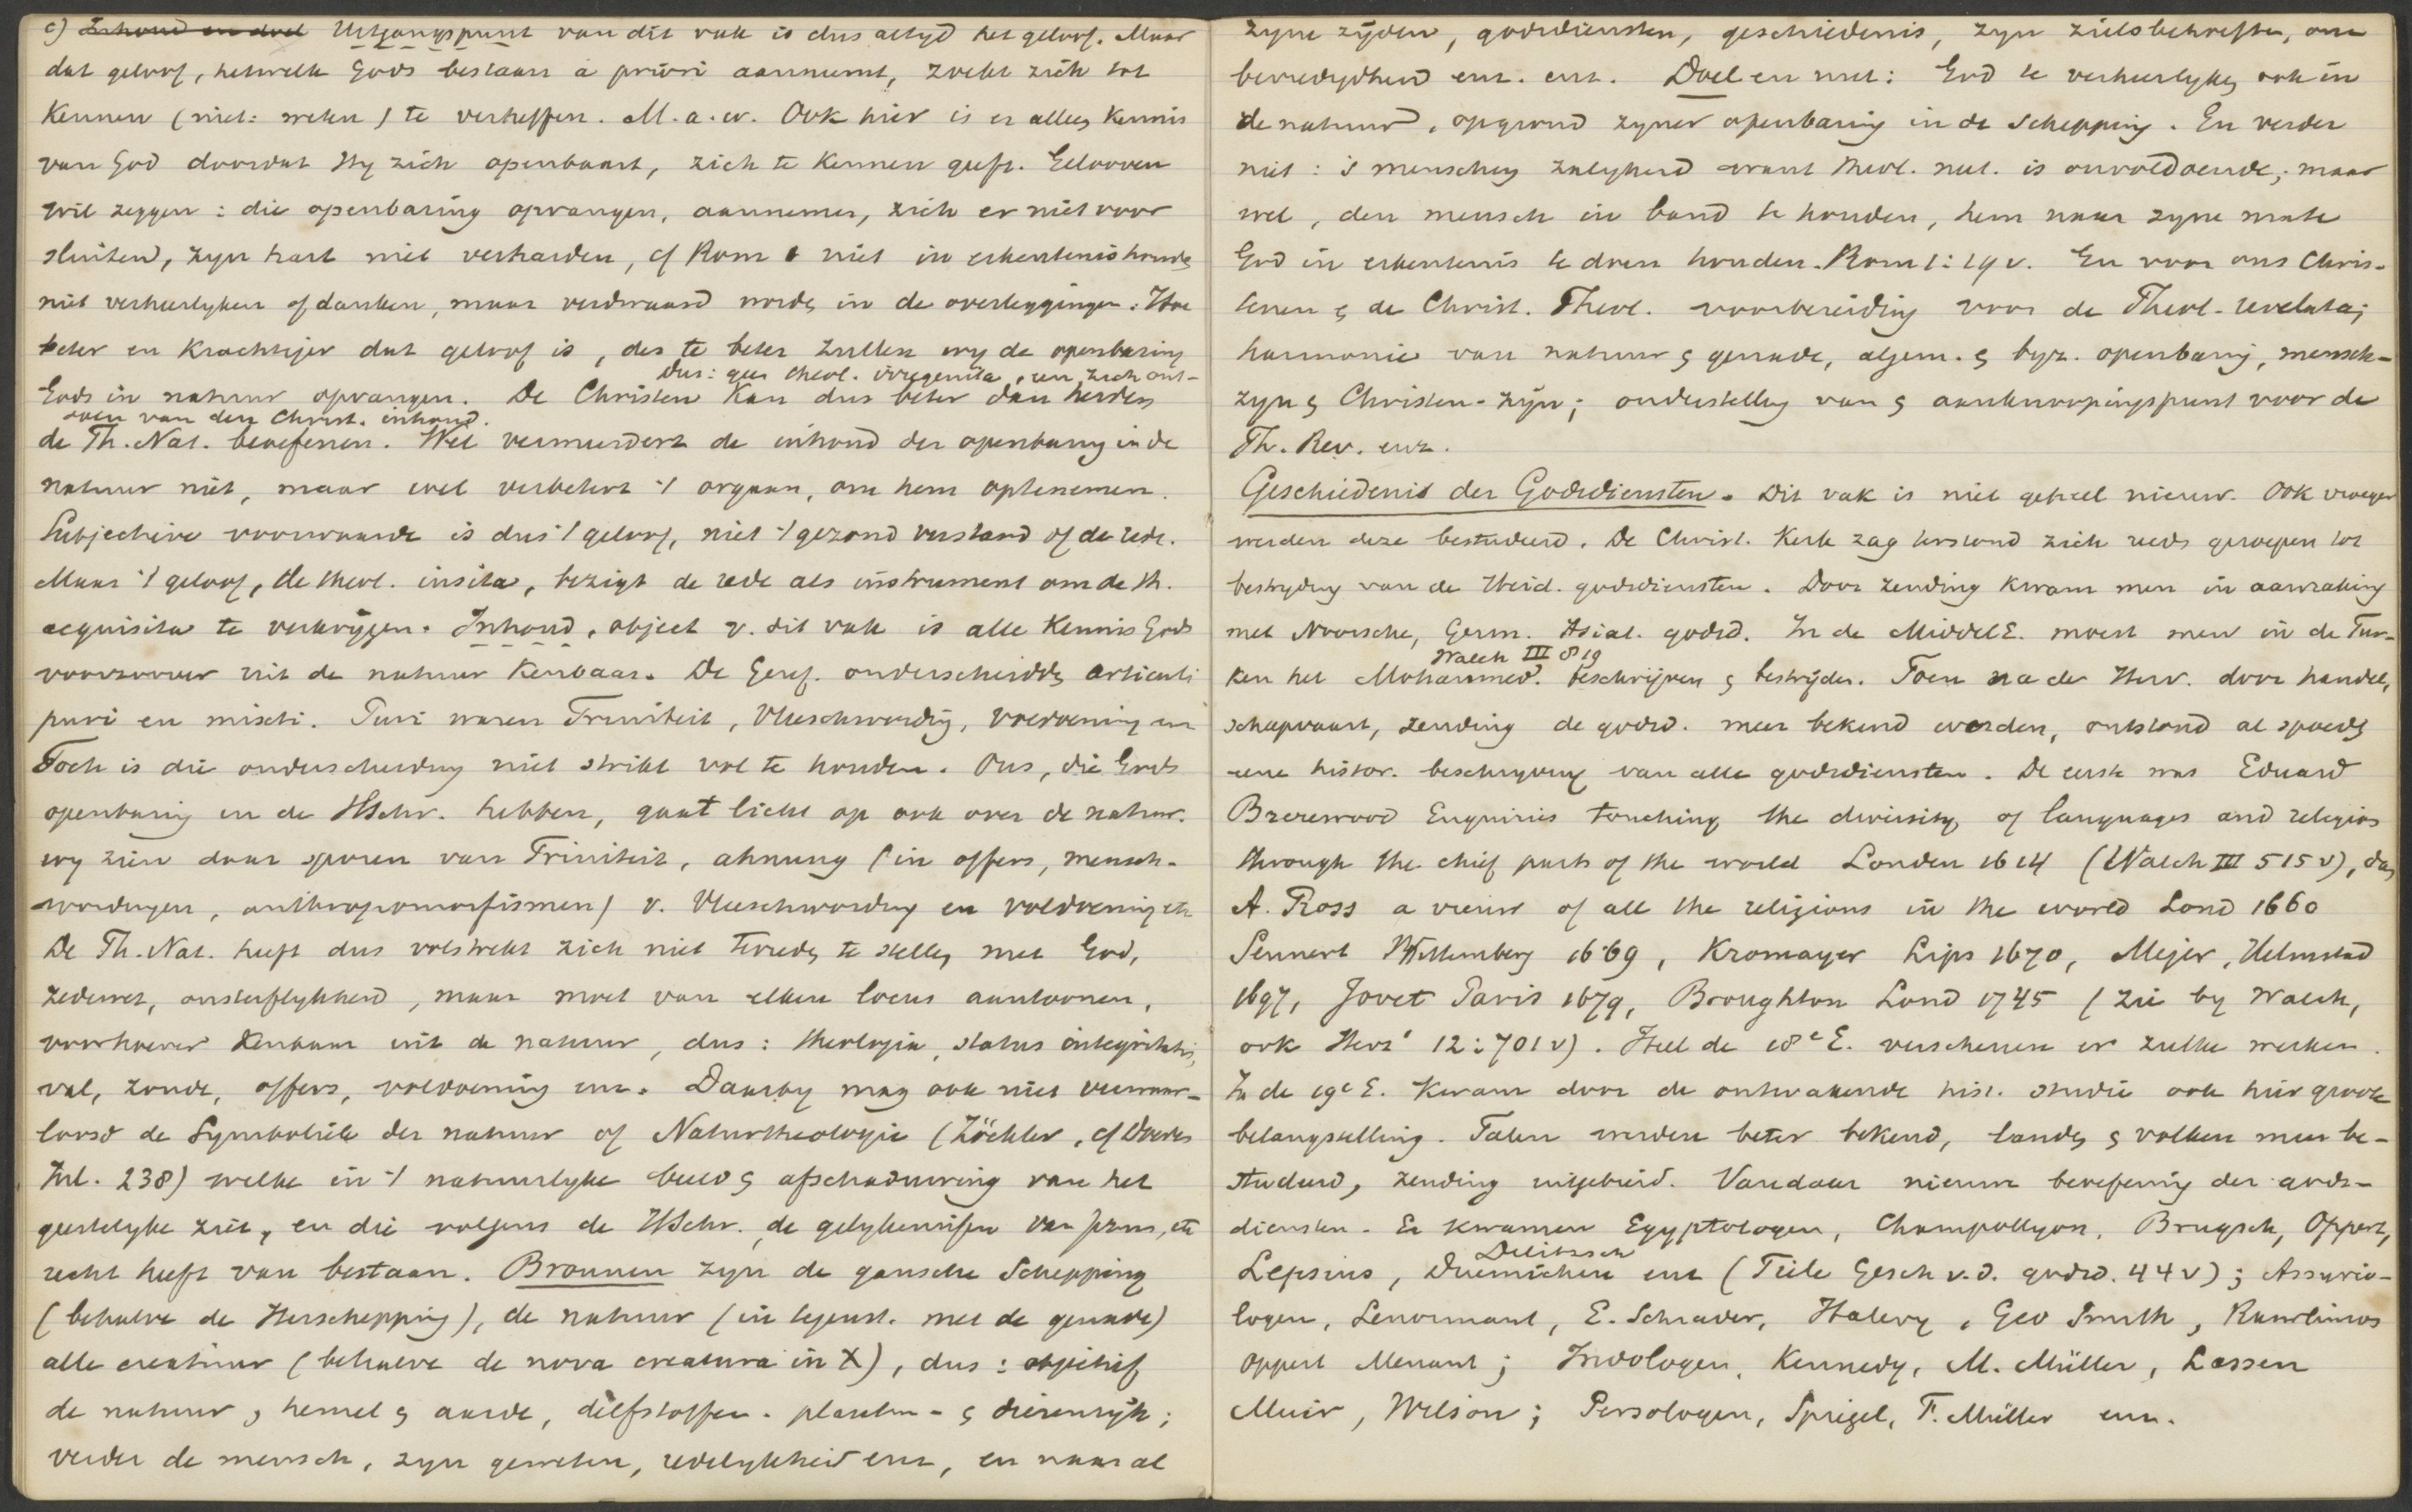 c) Inhoud en doel Uitgangspunt van dit vak is dus altyd het geloof. Maar
dat geloof, hetwelk Gods bestaan a priori aanneemt, zoekt zich tot
Kennen (niet: weten) te verheffen. M.a.w. Ook hier is er alleen Kennis
van God doordat Hy zich openbaart, zich te Kennen geeft. Gelooven
wil zeggen: die openbaring opvangen, aannemen, zich er niet voor
sluiten, zyn hart niet verharden, cf Rom 1 niet in erkentenis houden
niet verheerlyken of danken, maar verdwaasd worden in de overleggingen. Hoe
beter en Krachtiger dat geloof is, des te beter zullen wy de openbaring
dus: geen theol. irregenita, en zich ont-
Gods in natuur opvangen. De Christen Kan dus beter dan heiden
doen van den Christ. inhoud.
de Th. Nat. beoefenen. Wel vermeerdert de inhoud der openbaring in de
natuur niet, maar wel verbetert 't orgaan, om hem optenemen.
Subjectieve voorwaarde is dus 't geloof, niet 't gezond verstand of de rede.
Maar 't geloof, de theol. insita, bezigt de rede als instrument om de th.
acquisita te verkrijgen. Inhoud, object v. dit vak is alle Kennis Gods
voorzoover uit de natuur Kenbaar. De Geref. onderscheidden articuli
puri en mixti. Puri waren Triniteit, Vleeschwording, voldoening enz
Toch is die onderscheiding niet strikt vol te houden. Ons, die Gods
openbaring in de HSchr. hebben, gaat licht op ook over de natuur.
wy zien daar sporen van Triniteit, ahnung (in offers, mensch-
wordingen, anthropomorfismen) v. Vleeschwording en voldoening etc
De Th. Nat. heeft dus volstrekt zich niet tevreden te stellen met God,
zedewet, onsterflykheid, maar moet van elken locus aantoonen,
voorhoever Kenbaar uit de natuur, dus: theologia, status integritatis,
val, zonde, offers, voldoening enz. Daarby mag ook niet verwaar-
loosd de Symboliek der natuur of Naturtheologie (Zöckler, cf Doedes
Inl. 238) welke in 't natuurlyke beeld & afschaduwing van het
geestelyke ziet, en die volgens de HSchr. de gelykenissen van Jezus, etc
recht heeft van bestaan. Bronnen zyn de gansche Schepping
(behalve de Herschepping), de natuur (in tegenst. met de genade)
alle creatuur (behalve de nova creatura in X), dus: objectief
de natuur, hemel & aarde, delfstoffen- planten- & dierenrijk;
verder de mensch, zyn geweten, redelykheid enz, en naar al
zyne zyden, godsdiensten, geschiedenis, zyn zielsbehoeften, on-
bevredigdheid enz. enz. Doel en nut: God te verheerlyken ook in
de natuur, op grond zyner openbaring in de Schepping. En verder
niet: 's menschen zaligheid want theol. nat. is onvoldoende; maar
wel, den mensch in band te houden, hem naar zyne mate
God in erkentenis te doen houden. Rom 1:19 v. En voor ons Chris-
tenen & de Christ. Theol. voorbereiding voor de Theol. revelata;
harmonie van natuur & genade, algem. & byz. openbaring, mensch-
zyn & Christen-zijn; onderstelling van & aanknoopingspunt voor de
Th. Rev. enz.
Geschiedenis der Godsdiensten. Dit vak is niet geheel nieuw. Ook vroeger
werden deze bestudeerd. De Christ. Kerk zag terstond zich reeds geroepen tot
bestryding van de Heid. godsdiensten. Door zending kwam men in aanraking
met Noorsche, Germ. Asiat. godsd. In de MiddelE. moest men in de Tur-
Walch III 819
ken het Mohammed. beschrijven & bestrijden. Toen na de Herv. door handel,
scheepvaart, zending de godsd. meer bekend werden, ontstond al spoedig
eene histor. beschryving van alle godsdiensten. De eerste was Eduard
Brerewood Enquiries touching the diversity of languages and religios
through the chief parts of the world Londen 1614 (Walch III 515 v), dan
A. Ross a vieuw of all the religions in the world Lond 1660
Sennert Wittemberg 1669, Kromayer Lips 1670, Mejer, Helmstad
1697, Jovet Paris 1679, Broughton Lond 1745 (zie by Walch,
ook Herz' 12:701 v). Heel de 18e E. verschenen er zulke werken.
In de 19e E. Kwam door de ontwakende hist. studie ook hier groote
belangstelling. Talen werden beter bekend, landen & volken meer be-
studeerd, zending uitgebreid. Vandaar nieuwe beoefening der gods-
diensten. Er kwamen Egyptologen, Champollyon, Brugsch, Oppert,
Delitzsch
Lepsius, Duemichen enz (Tiele Gesch v. d. godsd. 44 v); Assyrio-
logen, Lenormant, E. Schrader, Halevy, Geo Smith, Rawlinson
Oppert Menant; Indologen, Kennedy, M. Müller, Lassen
Muir, Wilson; Persologen, Spiegel, F. Müller enz.